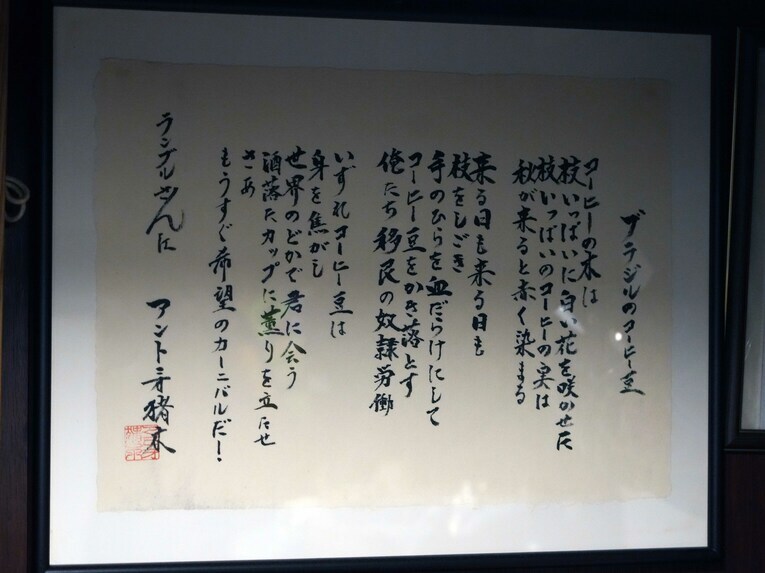 ブラジルのコーヒー豆
コーヒーの木は
枝いっぱいに白い花を咲かせた
枝いっぱいのコーヒーの実は
秋が来ると赤く染まる
来る日も来る日も
枝をしごき
手のひらを血だらけにして
コーヒー豆をかき落とす
俺たち移民の奴隷労働
いずれコーヒー豆は
身を焦がし
世界のどかで君に会う
洒落たカップに薫りを立たせ
さあ
もうすぐ希望のカーニバルだ！
ランデルさんに
アントニオ猪木